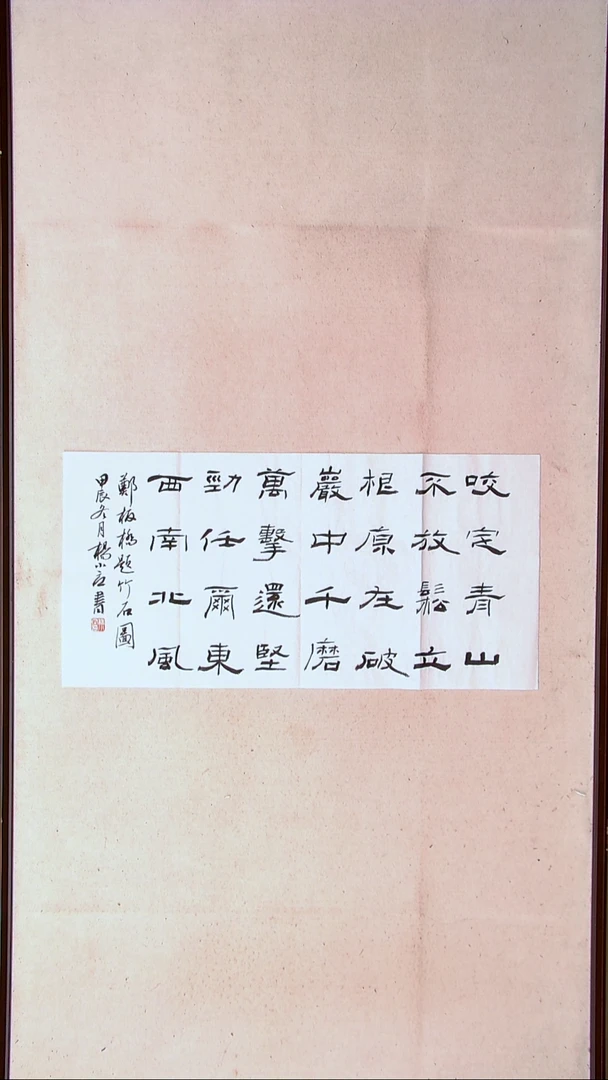 咬定青山
不放鬆立
根原在破
巖中千磨
萬擊還堅
勁任爾東
西南北風
鄭板橋題竹石圖
甲辰冬月楊小書